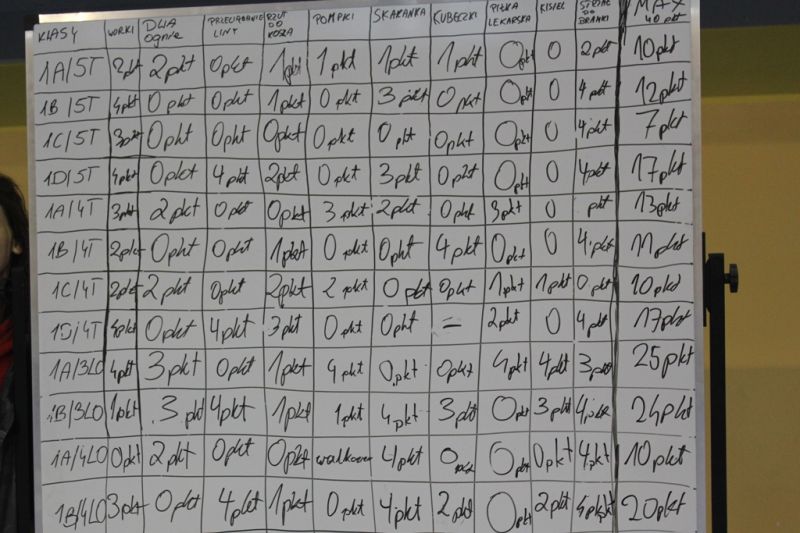 KLASY WORKI DWA OGNIE PRZECIĄGANIE LINY RZUT DO KOSZA POMPKI SKAKANKA KUBECZKI PIŁKA LEKARSKA KISIEL STRZAŁ DO BRAMKI MAX 40 pkt
1A/5T 2pkt 2pkt 0pkt 1pkt 1pkt 1pkt 1pkt 0pkt 0 2pkt 10pkt
1B/5T 4pkt 0pkt 0pkt 1pkt 0pkt 3pkt 0pkt 0pkt 0 4pkt 12pkt
1C/5T 3pkt 0pkt 0pkt 0pkt 0pkt 0pkt 0pkt 0pkt 0 4pkt 7pkt
1D/5T 4pkt 0pkt 4pkt 2pkt 0pkt 3pkt 0pkt 0pkt 0 4pkt 17pkt
1A/4T 3pkt 2pkt 0pkt 0pkt 3pkt 2pkt 0pkt 3pkt 0 pkt 13pkt
1B/4T 2pkt 0pkt 0pkt 1pkt 0pkt 0pkt 4pkt 0pkt 0 4pkt 11pkt
1C/4T 2pkt 2pkt 0pkt 2pkt 2pkt 0pkt 0pkt 1pkt 1pkt 0pkt 10pkt
1D/4T 4pkt 0pkt 4pkt 3pkt 0pkt 0pkt – 2pkt 0 4pkt 17pkt
1A/3LO 4pkt 3pkt 0pkt 1pkt 4pkt 0pkt 0pkt 4pkt 4pkt 3pkt 25pkt
1B/3LO 1pkt 3pkt 4pkt 1pkt 1pkt 4pkt 3pkt 0pkt 3pkt 4pkt 24pkt
1A/4LO 0pkt 2pkt 0pkt 0pkt walkower 4pkt 0pkt 0pkt 0pkt 4pkt 10pkt
1B/4LO 3pkt 0pkt 4pkt 1pkt 0pkt 4pkt 2pkt 0pkt 2pkt 4pkt 20pkt